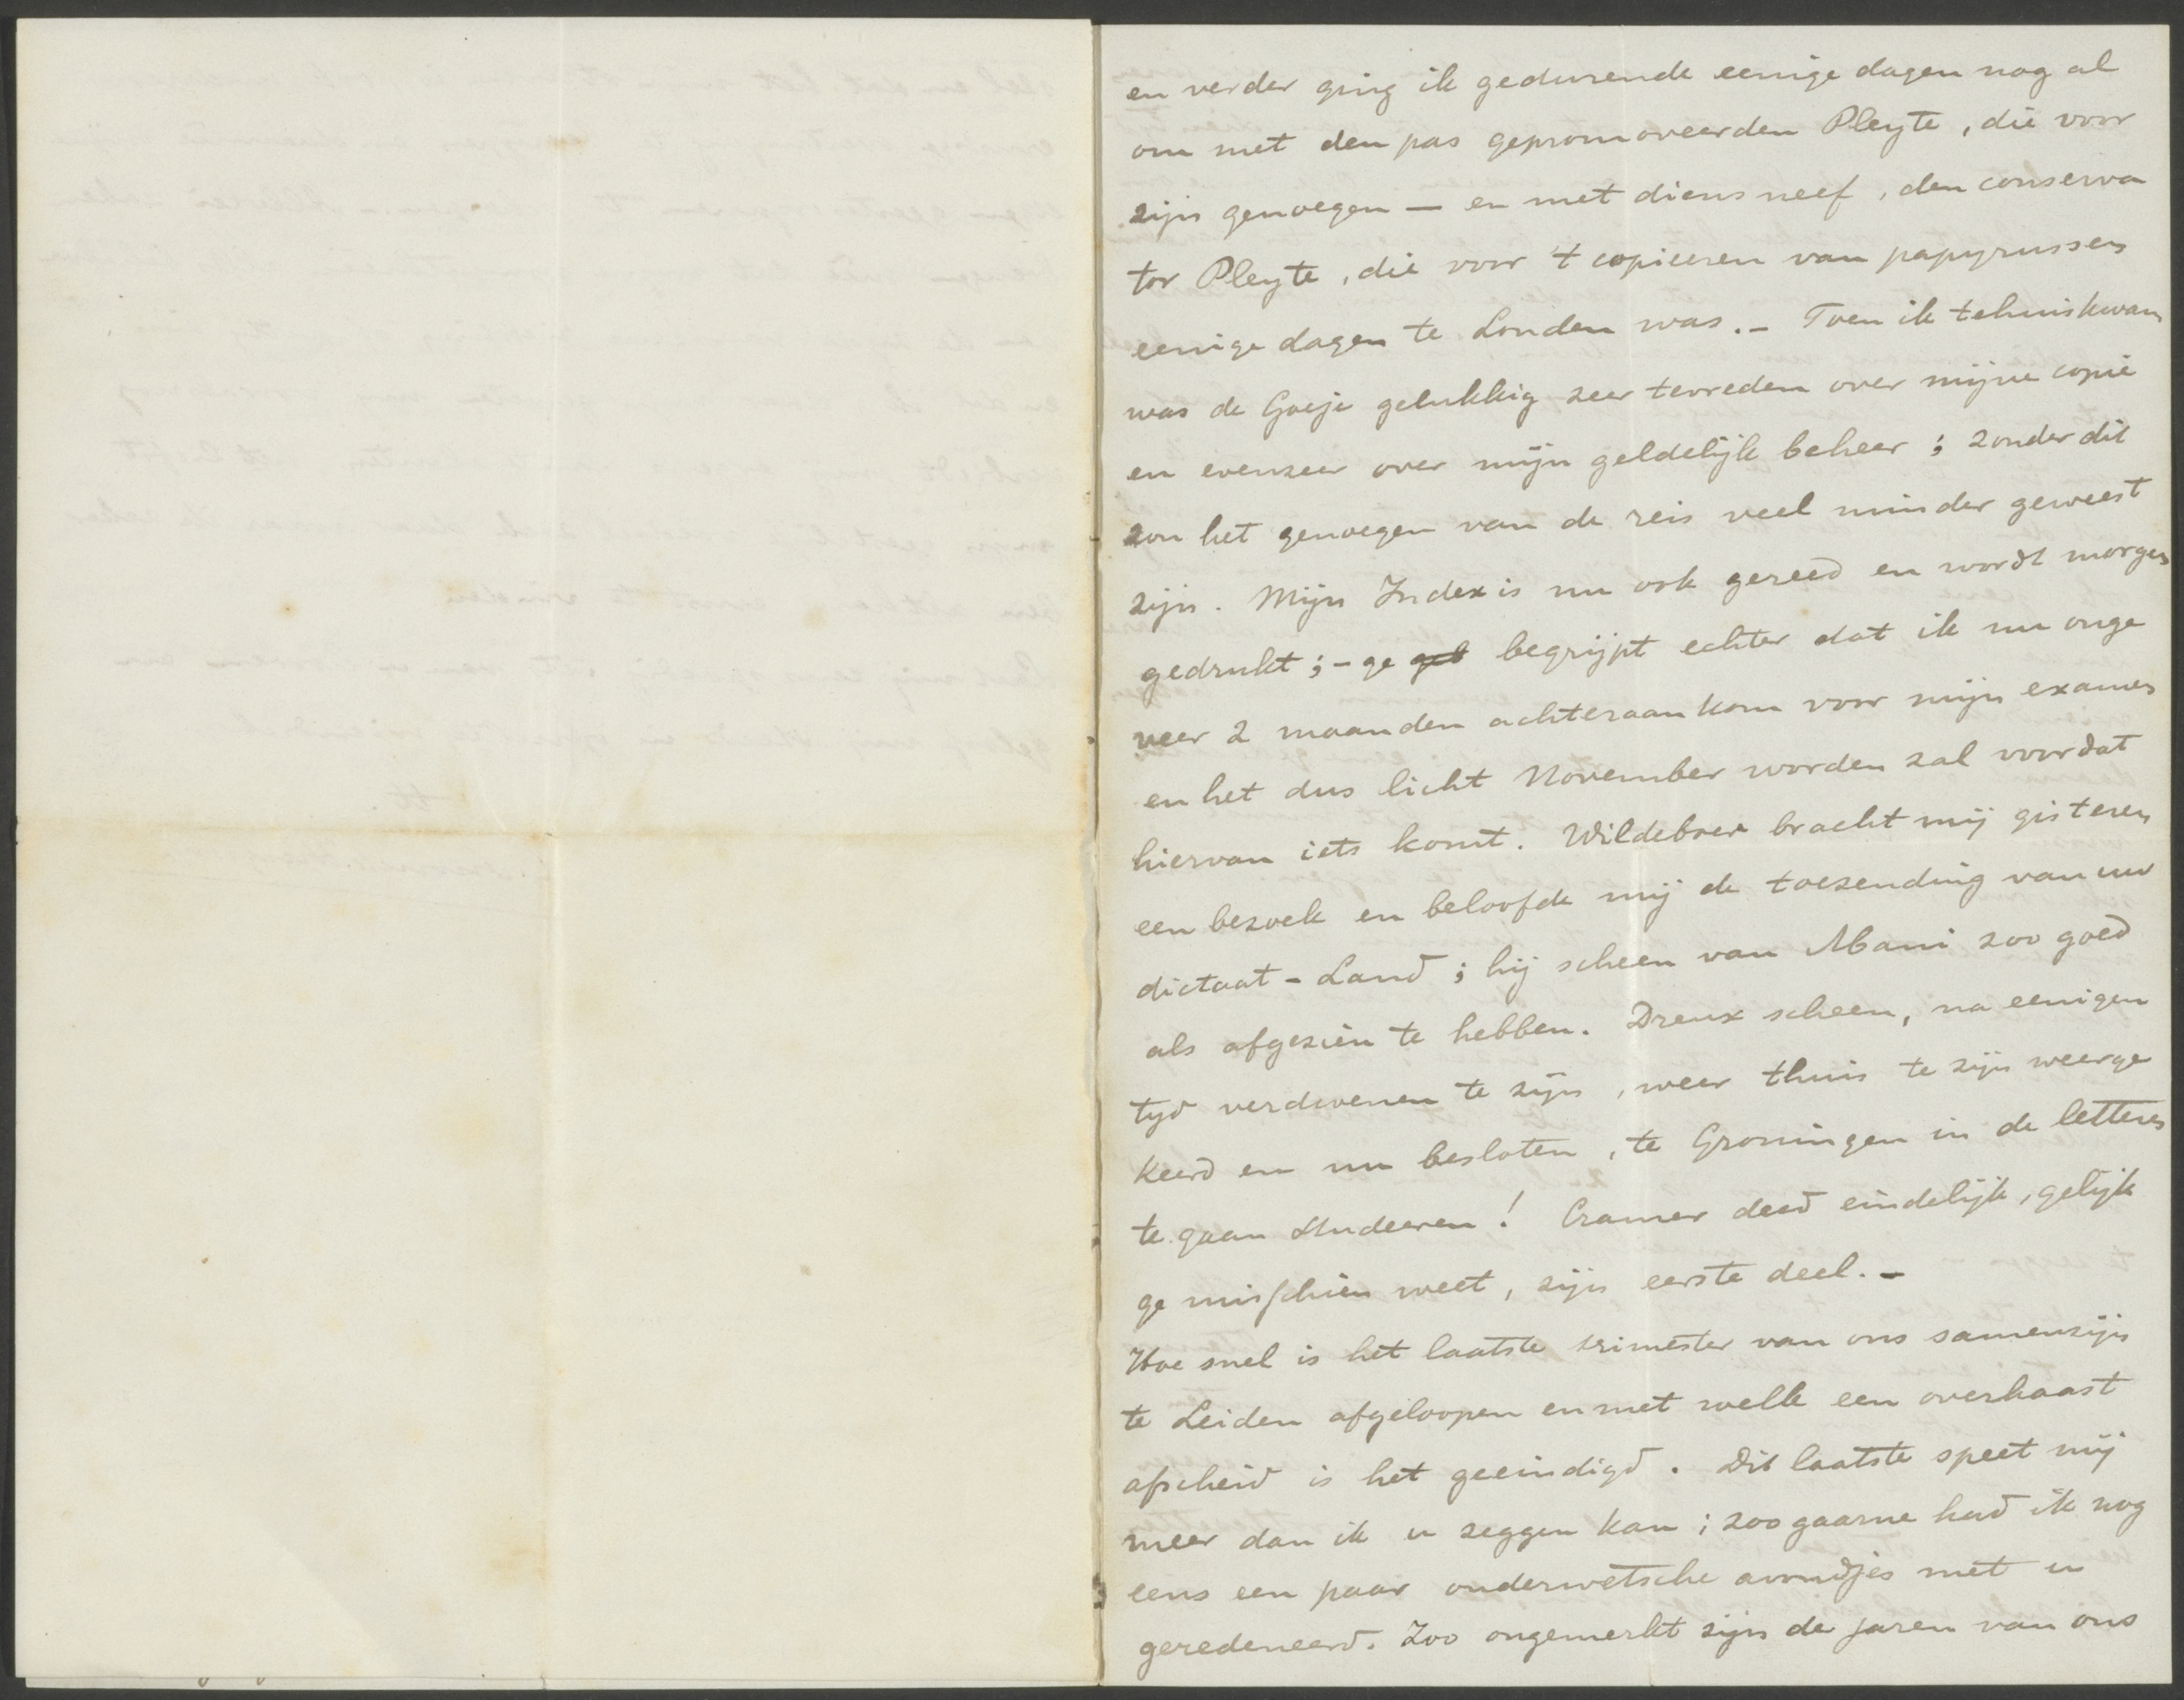 en verder ging ik gedurende eenige dagen nog al
om met den pas gepromoveerden Pleyte, die voor
zijn genoegen — en met diens neef, den conserva
tor Pleyte, die voor 't copieeren van papyrussen
eenige dagen te Londen was. – Toen ik tehuiskwam
was de Goeje gelukkig zeer tevreden over mijne copie
en evenzeer over mijn geldelijk beheer; zonder dit
zou het genoegen van de reis veel minder geweest
zijn. Mijn Index is nu ook gereed en wordt morgen
gedrukt; – ge begrijpt echter dat ik nu onge
veer 2 maanden achteraan kom voor mijn examen
en het dus licht November worden zal voordat
hiervan iets komt. Wildeboer bracht mij gisteren
een bezoek en beloofde mij de toezending van uw
dictaat - Land; hij scheen van Mani zoo goed
als afgezien te hebben. Dreux scheen, na eenigen
tijd verdwenen te zijn, weer thuis te zijn weerge
keerd en nu besloten, te Groningen in de letteren
te gaan studeeren! Cramer deed eindelijk, gelijk
ge misschien weet, zijn eerste deel. –
Hoe snel is het laatste trimester van ons samenzijn
te Leiden afgeloopen en met welk een overhaast
afscheid is het geeindigd. Dit laatste speet mij
meer dan ik u zeggen kan; zoo gaarne had ik nog
eens een paar ouderwetsche avondjes met u
geredeneerd. Zoo ongemerkt zijn de jaren van ons